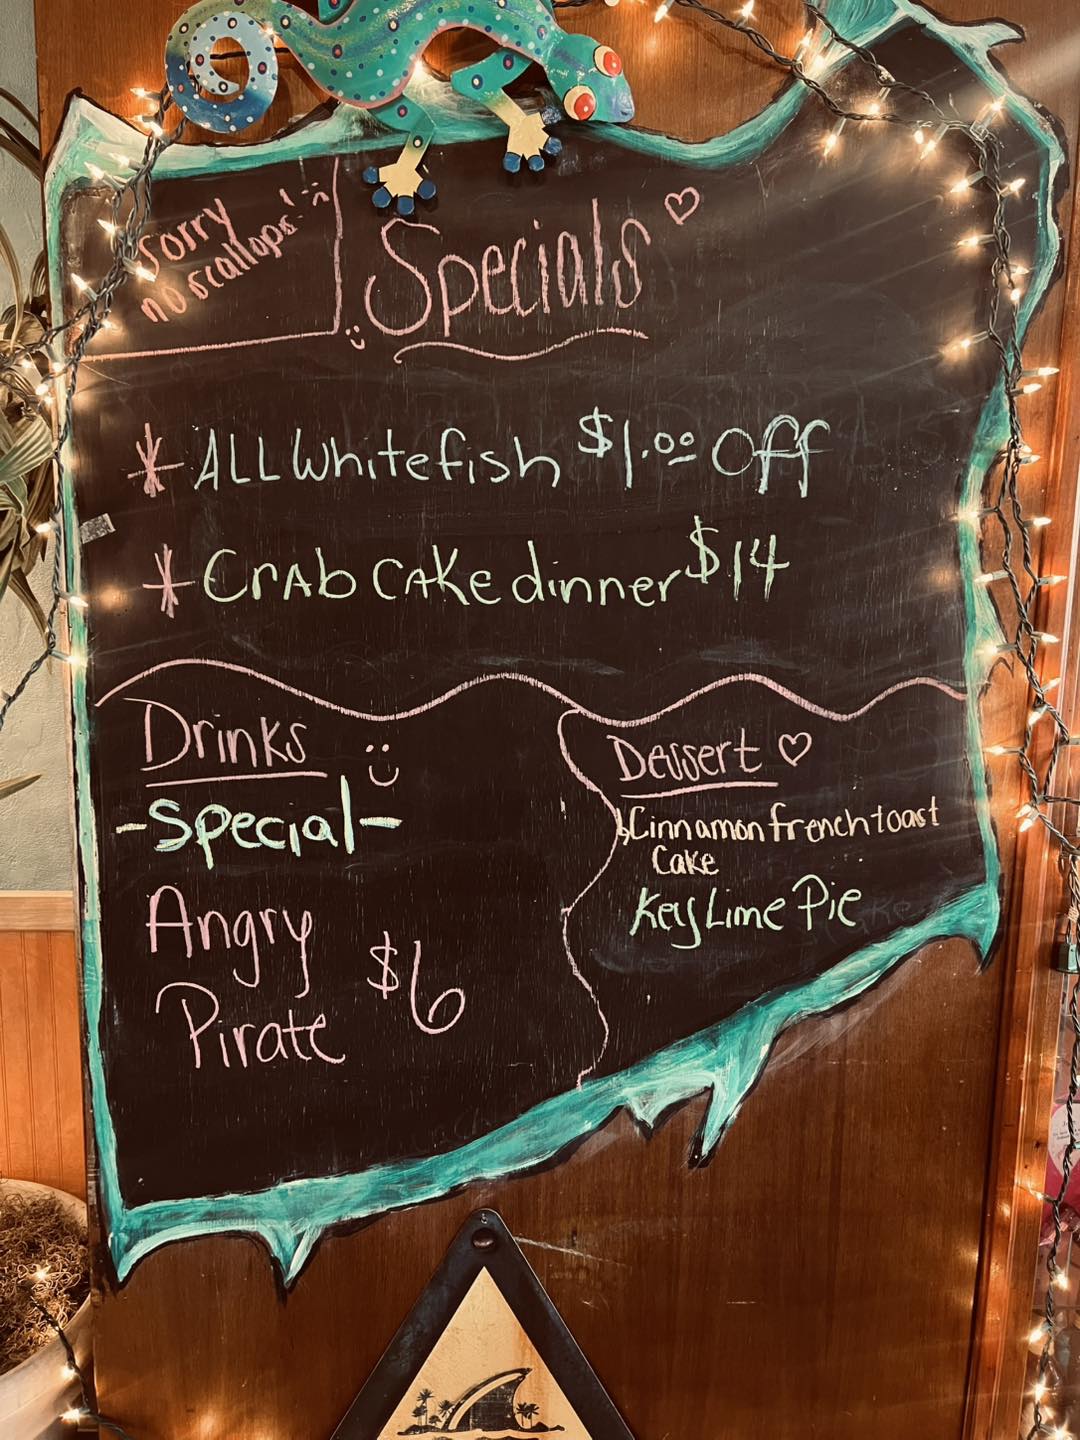 Sorry
no scallops!
Specials
ALL Whitefish $1.00 Off
CrAb CAKe dinner $14
Drinks
-Special-
Angry
Pirate $6
Dessert
Cinnamon french toast
Cake
Key Lime Pie